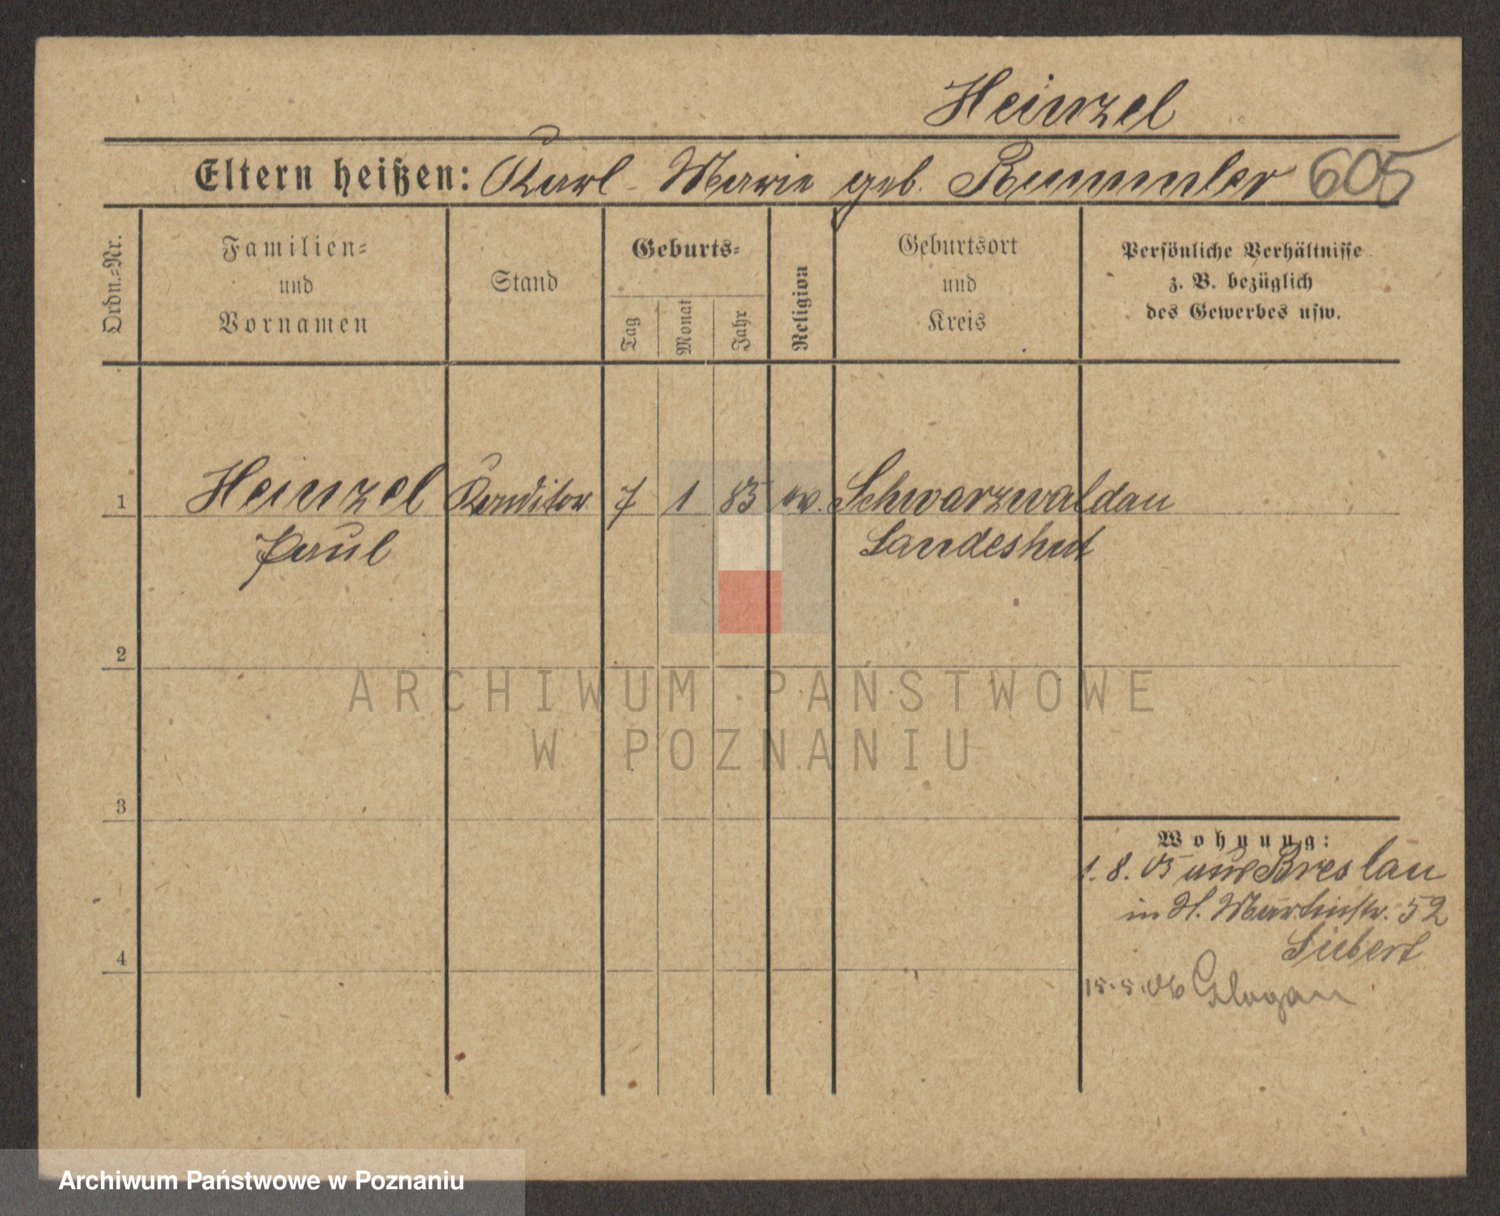 Heinzel
Eltern heißen: Karl - Marie geb. Rummler 605
Ordn.-Nr.
Familien-
und
Vornamen
Stand
Geburts-
Tag
Monat
Jahr
Religion
Geburtsort
und
Kreis
Persönliche Verhältnisse
z. B. bezüglich
des Gewerbes usw.
1 Heinzel Konditor 7 1 85 ev. Schwarzwaldau
Paul Landeshut
2
ARCHIWUM PAŃSTWOWE
W POZNANIU
3
Wohnung:
1. 8. 05 aus Breslau
in St. Martinstr. 52
Siebert
4
15.5.06 Glogau
Archiwum Państwowe w Poznaniu